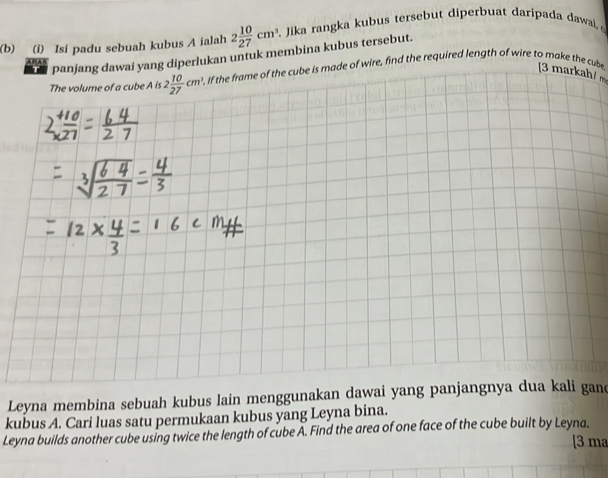 (b) (i) Isi padu sebuah kubus A ialah 2 10/27 cm³. Jika rangka kubus tersebut diperbuat daripada dawai,
ARAS T panjang dawai yang diperlukan untuk membina kubus tersebut.
The volume of a cube A is 2 10/27 cm³. If the frame of the cube is made of wire, find the required length of wire to make the cube.
[3 markah/
2 +10/×27 = 64/27
= ³√64/27 = 4/3
= 12 × 4/3 = 16 cm#
Leyna membina sebuah kubus lain menggunakan dawai yang panjangnya dua kali
kubus A. Cari luas satu permukaan kubus yang Leyna bina.
Leyna builds another cube using twice the length of cube A. Find the area of one face of the cube built by Leyna.
[3